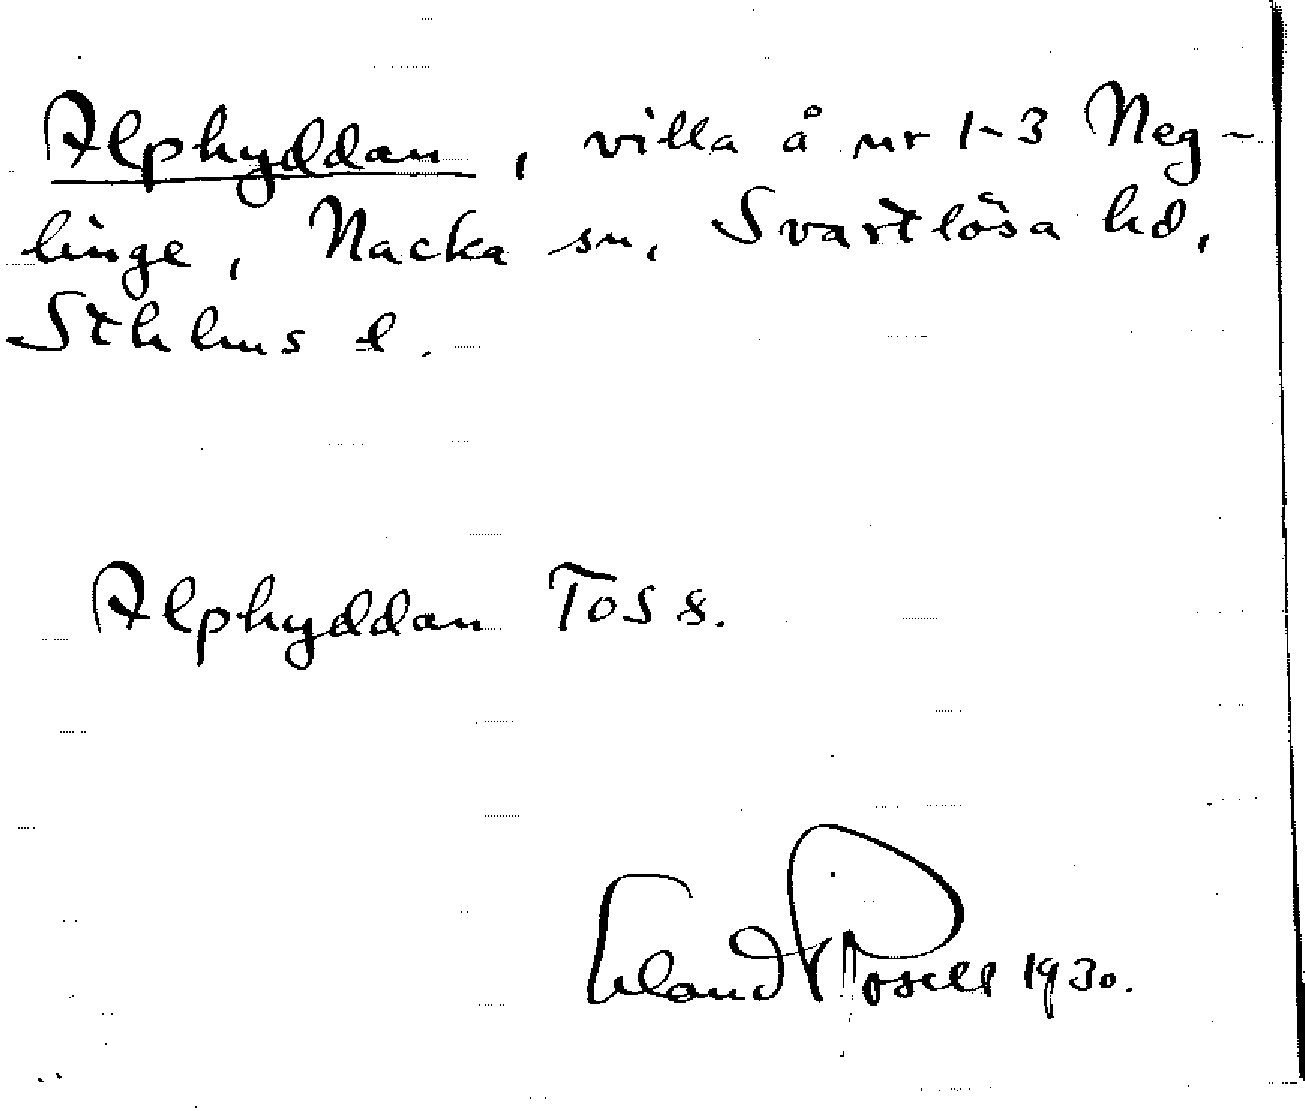 Alphyddan, villa å nr 1-3 Neg-
linge, Nacka sn, Svartlösa hd,
Sthlms l.
Alphyddan ToS 8.
Erland Rosell 1930.